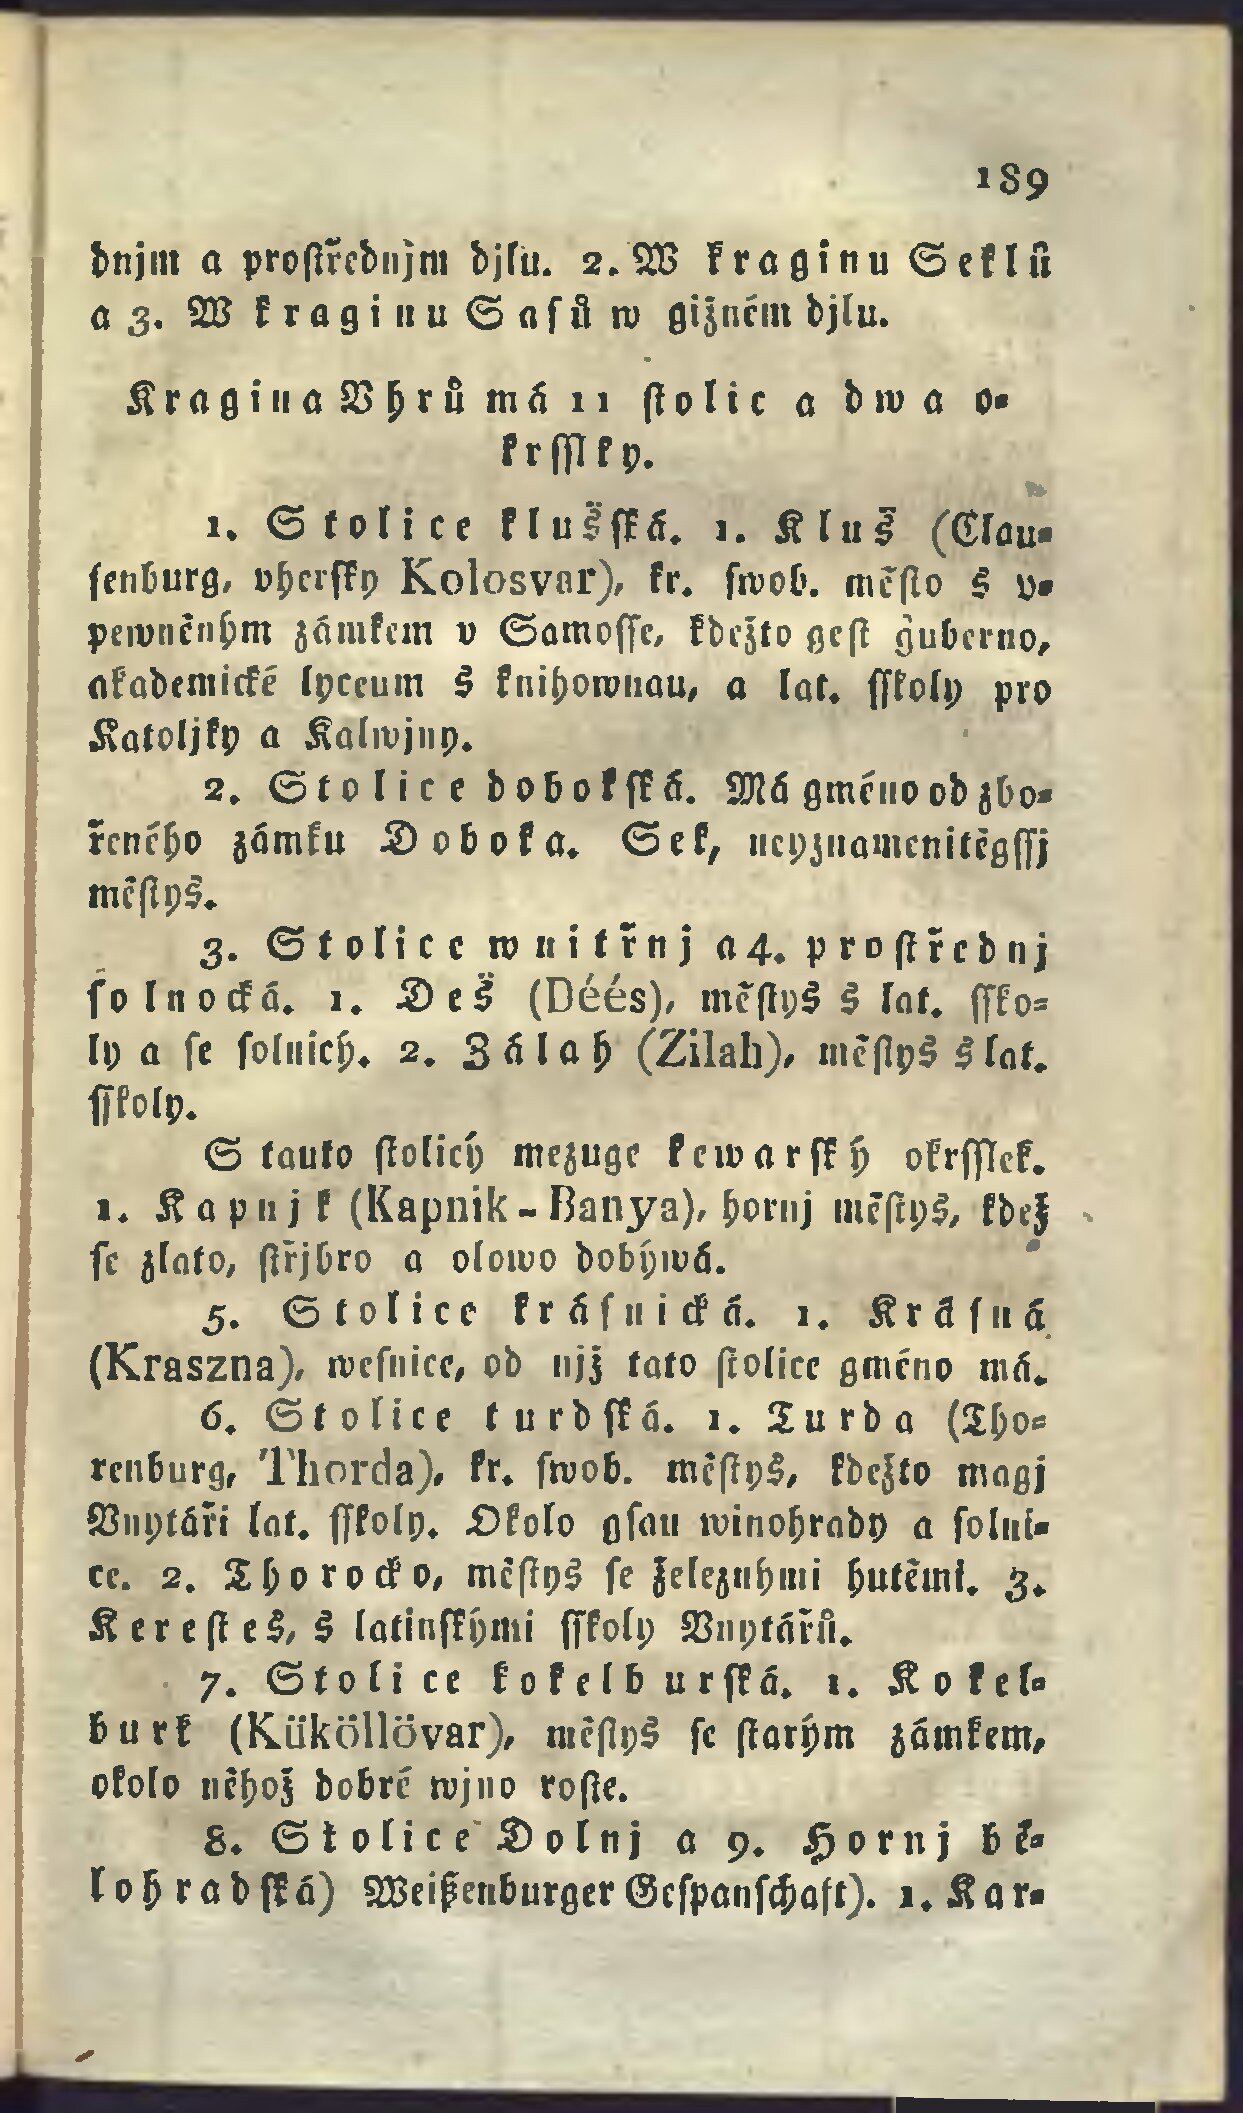 189
dnjm a prostřednjm djlu. 2. W kraginu Seklů
a 3. W kraginu Sasů w gižném djlu.
Kragina Vhrů má 11 stolic a dwa o-
krsslky.
1. Stolice klušská. 1. Kluš (Clau-
senburg, vhersky Kolosvar), kr. swob. město s v-
pewněným zámkem v Samosse, kdežto gest ǧuberno,
akademické lyceum s knihownau, a lat. sskoly pro
Katoljky a Kalwjny.
2. Stolice dobokská. Má gméno od zbo-
řeného zámku Doboka. Sek, neyznamenitěgssj
městys.
3. Stolice wnitřnj a 4. prostřednj
solnocká. 1. Deš (Déés), městys s lat. ssko-
ly a se solnich. 2. Zálah (Zilah), městys s lat.
sskoly.
S tauto stolicý mezuge kewarský okrsslek.
1. Kapnjk (Kapnik-Banya), hornj městys, kdež
se zlato, střjbro a olowo dobýwá.
5. Stolice krásnická. 1. Krásná
(Kraszna), wesnice, od njž tato stolice gméno má.
6. Stolice turdská. 1. Turda (Tho-
renburg, Thorda), kr. swob. městys, kdežto magj
Vnytáři lat. sskoly. Okolo gsau winohrady a solni-
ce. 2. Thorocko, městys se železnými hutěmi. 3.
Kerestes, s latinskými sskoly Vnytářů.
7. Stolice kokelburská. 1. Kokel-
burk (Küköllövar), městys se starým zámkem,
okolo něhož dobré wjno roste.
8. Stolice Dolnj a 9. Hornj bě-
lohradská) Weißenburger Gespanschaft). 1. Kar-